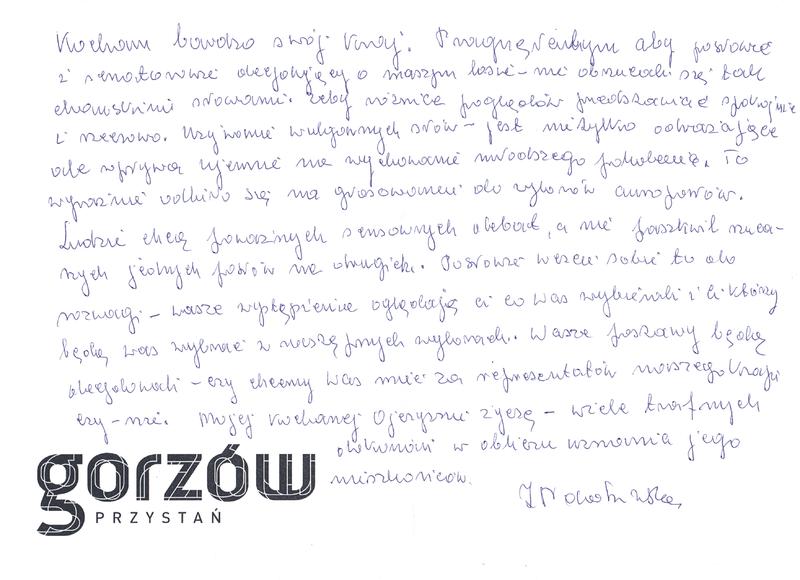 Kocham bardzo swój kraj. Pragnęłabym aby posłowie
i senatorowie decydujący o naszym losie – nie obrzucali się tak
chamskimi słowami. Żeby różnice poglądów przedstawiać spokojnie
i rzeczowo. Używanie wulgarnych słów – jest nie tylko odrażające
ale wpływa ujemnie na wychowanie młodszego pokolenia. To
wyraźnie odbiło się na głosowaniu do wyborów europosłów.
Ludzie chcą poważnych sensownych debat, a nie paszkwil rzuca-
nych jednych posłów na drugich. Posłowie weźcie sobie to do
rozwagi – wasze wystąpienia oglądają ci co was wybierali i ci którzy
będą was wybierać w następnych wyborach. Wasze postawy będą
decydowali – czy chcemy was mieć za reprezentatów naszego kraju
czy – nie. Mojej kochanej Ojczyźnie życzę – wiele trafnych
dokonań w obliczu uznania jego
mieszkańców.
gorzów
PRZYSTAŃ